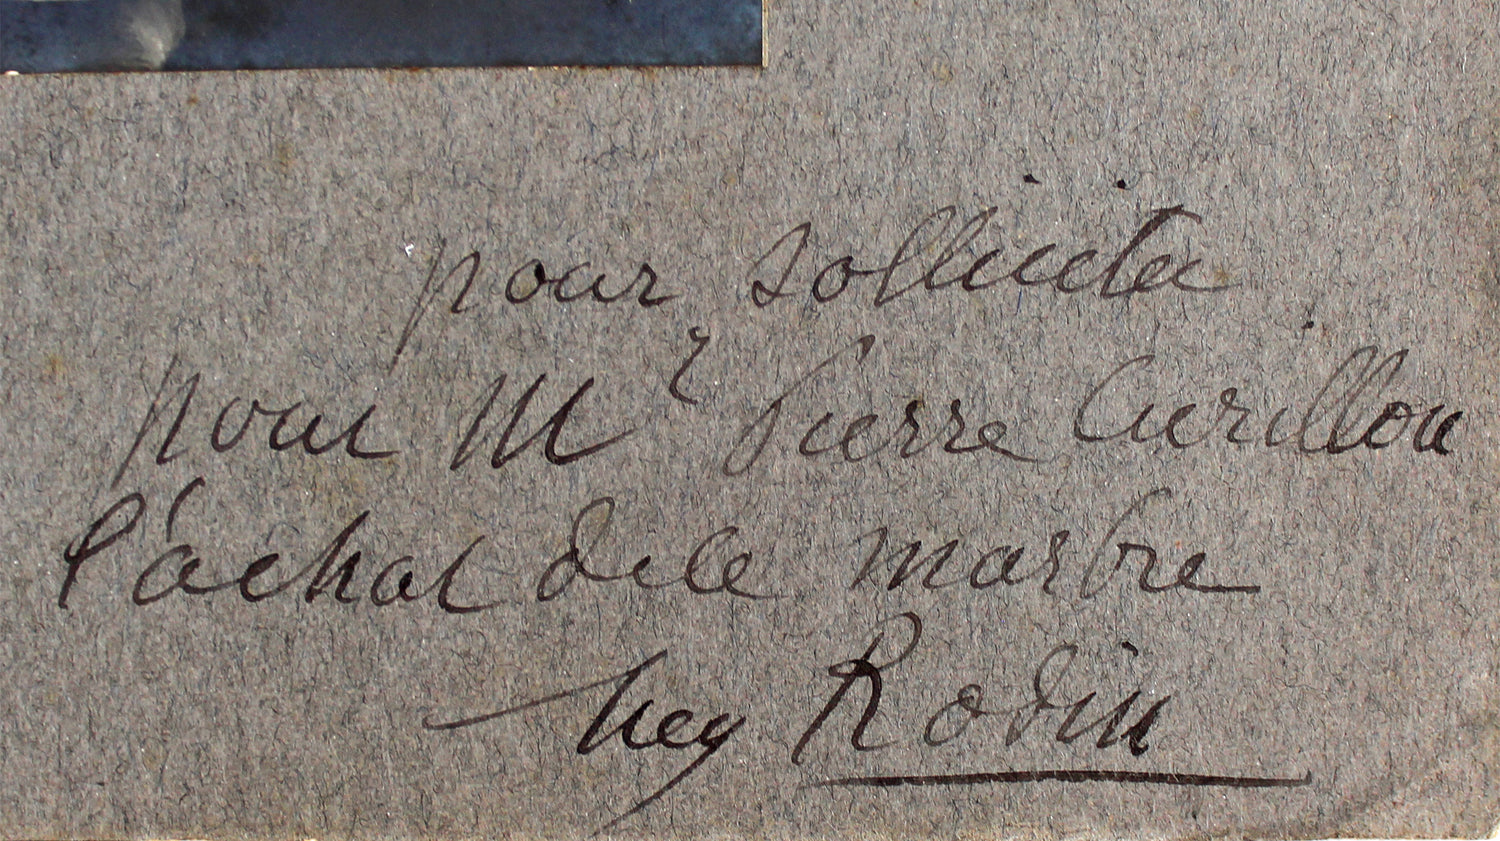 pour solliciter
pour Mr Pierre Curillon
l'achat de ce marbre
Aug Rodin